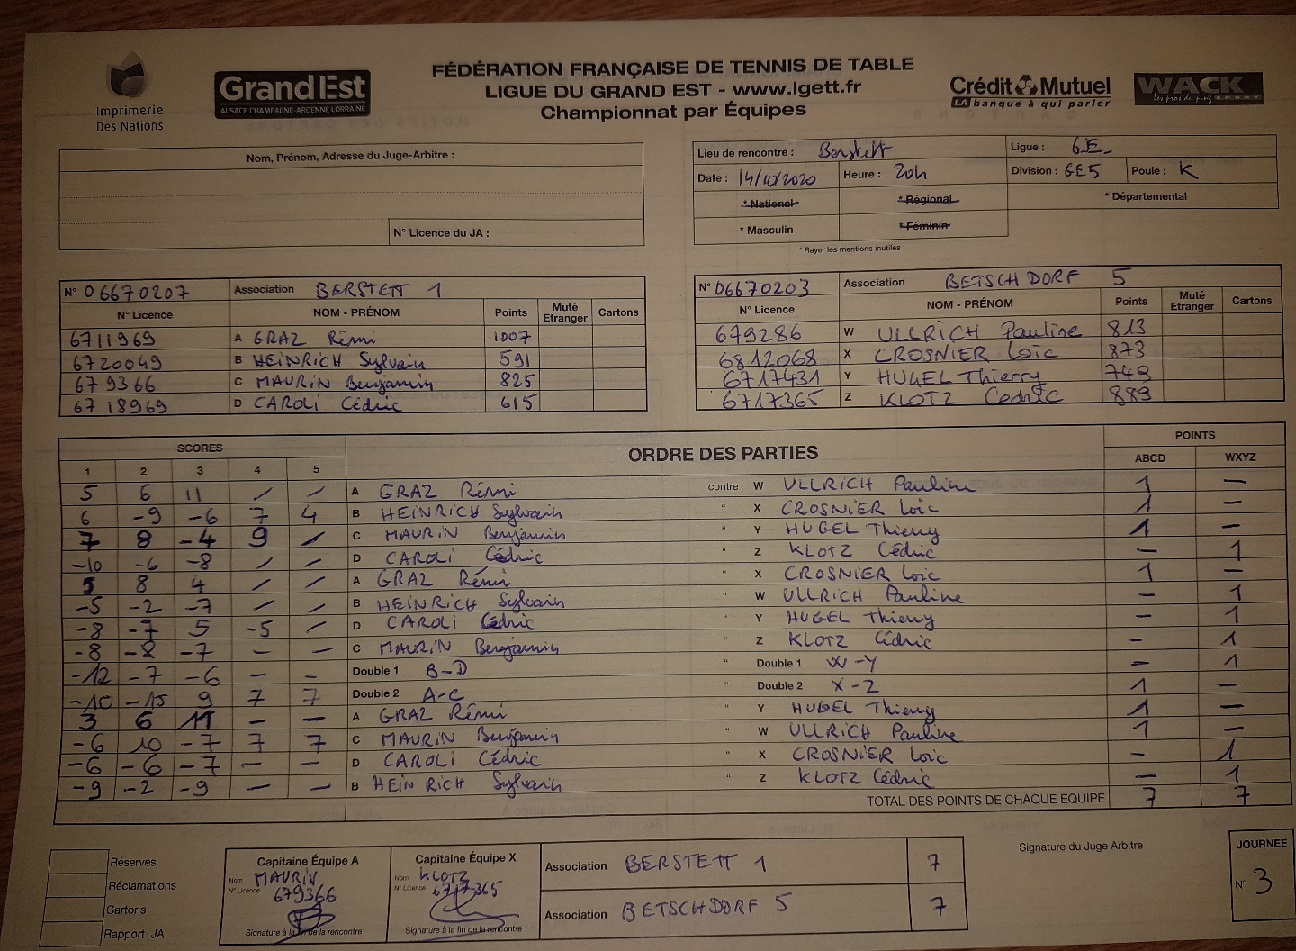 Imprimerie
Des Nations
GrandEst
ALSACE CHAMPAGNE-ARDENNE LORRAINE
FÉDÉRATION FRANÇAISE DE TENNIS DE TABLE
LIGUE DU GRAND EST - www.lgett.fr
Championnat par Équipes
Crédit Mutuel
LA banque à qui parler
WACK
Nom, Prénom, Adresse du Juge-Arbitre :
N° Licence du JA :
Lieu de rencontre : Berstett Ligue : G.E.
Date : 14/10/2020 Heure : 20h Division : GE5 Poule : K
* National * Régional * Départemental
* Masculin * Féminin
* Rayer les mentions inutiles
N° 06670207 Association BERSTETT 1
N° Licence NOM - PRÉNOM Points Muté Etranger Cartons
6711969 A GRAZ Rémi 1007
6720049 B HEINRICH Sylvain 591
679366 C MAURIN Benjamin 825
6718969 D CAROLI Cédric 615
N° 06670203 Association BETSCHDORF 5
N° Licence NOM - PRÉNOM Points Muté Etranger Cartons
679286 W ULLRICH Pauline 813
6812068 X CROSNIER Loïc 873
6717431 Y HUGEL Thierry
6717365 Z KLOTZ Cédric 889
SCORES ORDRE DES PARTIES POINTS
1 2 3 4 5 ABCD WXYZ
5 6 11 / / A GRAZ Rémi contre W ULLRICH Pauline 1 —
6 -9 -6 7 4 B HEINRICH Sylvain " X CROSNIER Loïc 1 —
7 8 -4 9 / C MAURIN Benjamin " Y HUGEL Thierry 1 —
-10 -6 -8 / / D CAROLI Cédric " Z KLOTZ Cédric — 1
5 8 4 / / A GRAZ Rémi " X CROSNIER Loïc 1 —
-5 -2 -7 / / B HEINRICH Sylvain " W ULLRICH Pauline — 1
-8 -7 5 -5 / D CAROLI Cédric " Y HUGEL Thierry — 1
-8 -8 -7 — — C MAURIN Benjamin " Z KLOTZ Cédric — 1
-12 -7 -6 — — Double 1 B-D " Double 1 W-Y — 1
-10 -15 9 7 7 Double 2 A-C " Double 2 X-Z 1 —
3 6 11 — — A GRAZ Rémi " Y HUGEL Thierry 1 —
-6 10 -7 7 7 C MAURIN Benjamin " W ULLRICH Pauline 1 —
-6 -6 -7 — — D CAROLI Cédric " X CROSNIER Loïc — 1
-9 -2 -9 — — B HEINRICH Sylvain " Z KLOTZ Cédric — 1
TOTAL DES POINTS DE CHAQUE EQUIPE 7 7
Réserves
Réclamations
Cartons
Rapport JA
Capitaine Équipe A
Nom MAURIN
N° Licence 679366
Signature à la fin de la rencontre
Capitaine Équipe X
Nom KLOTZ
N° Licence 6717365
Signature à la fin de la rencontre
Association BERSTETT 1 7
Association BETSCHDORF 5 7
Signature du Juge Arbitre
JOURNEE
N° 3